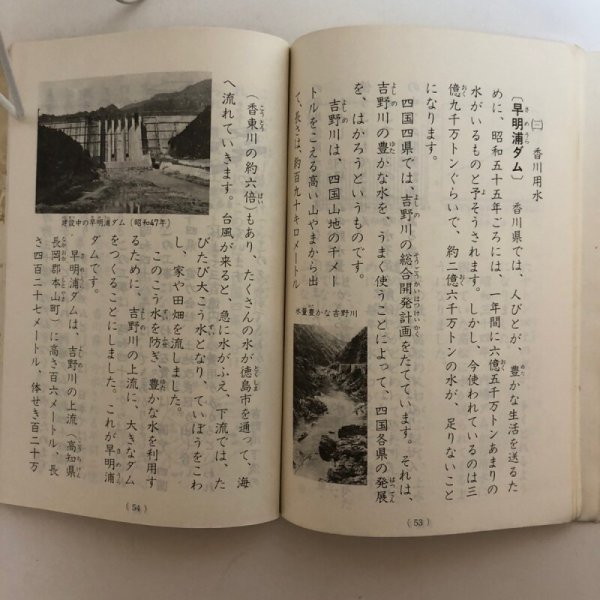 ㈡ 香川用水
〔早明浦ダム〕 香川県では、人びとが、豊かな生活を送るた
めに、昭和五十五年ごろには、一年間に六億五千万トンあまりの
水がいるものと予そうされます。しかし、今使われているのは三
億九千万トンぐらいで、約二億六千万トンの水が、足りないこと
になります。
四国四県では、吉野川の総合開発計画をたてています。それは、
吉野川の豊かな水を、うまく使うことによって、四国各県の発展
を、はかろうというものです。
吉野川は、四国山地の千メー
トルをこえる高い山やまから出
て、長さは、約百九十キロメートル
水量豊かな吉野川
(53)
建設中の早明浦ダム(昭和47年)
(香東川の約六倍)もあり、たくさんの水が徳島市を通って、海
へ流れていきます。台風が来ると、急に水がふえ、下流では、た
びたび大こう水となり、ていぼうをこわ
し、家や田畑を流しました。
このこう水を防ぎ、豊かな水を利用す
るために、吉野川の上流に、大きなダム
をつくることにしました。これが早明浦
ダムです。
早明浦ダムは、吉野川の上流(高知県
長岡郡本山町)に高さ百六メートル、長
さ四百二十七メートル、体せき百二十万
(54)